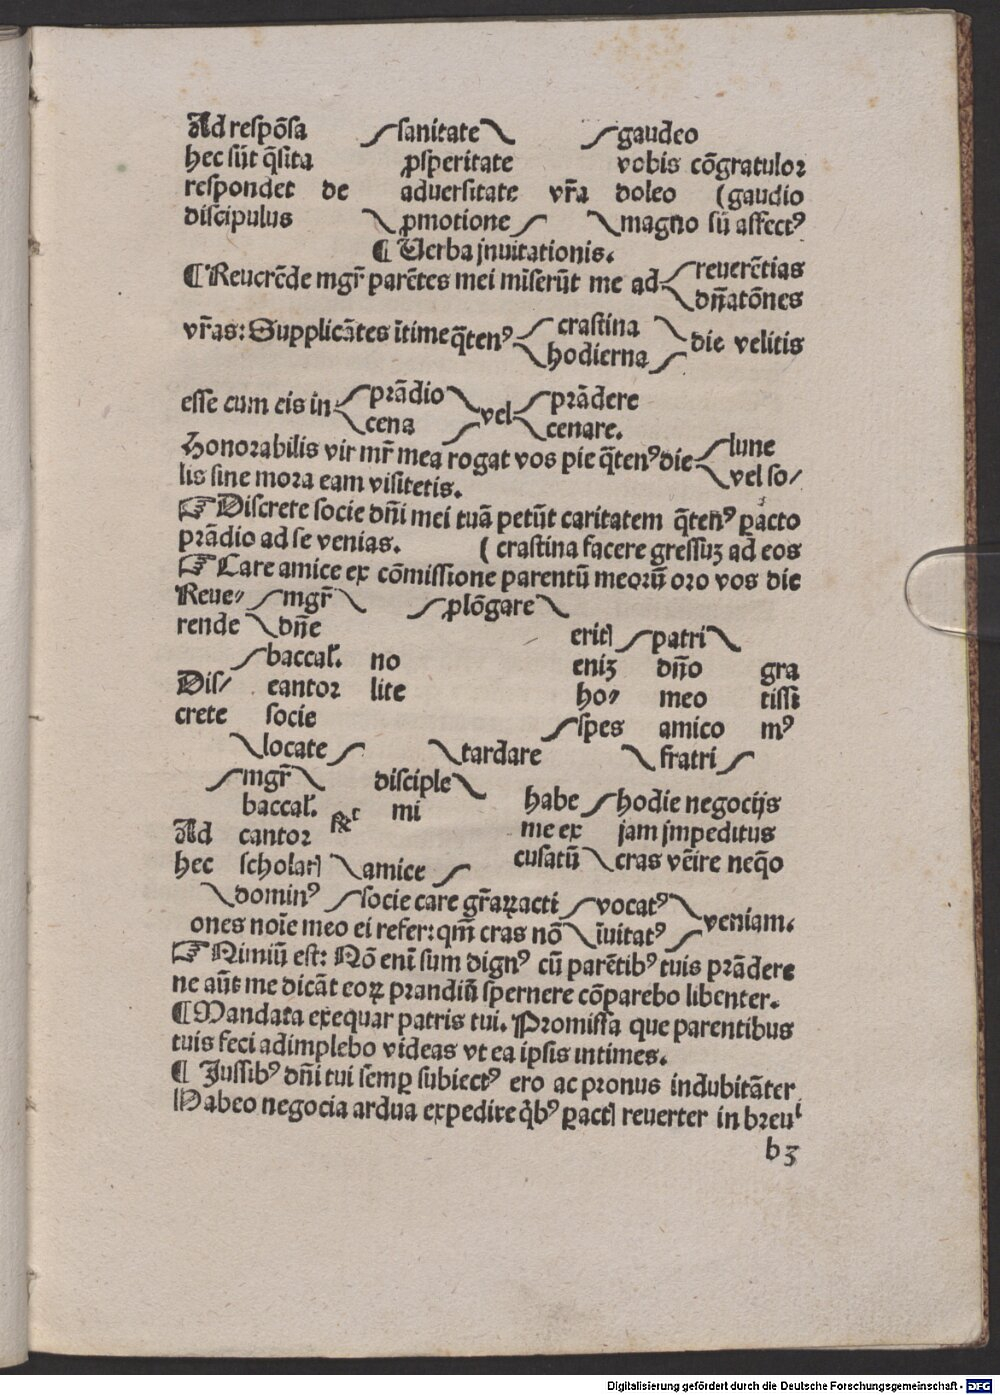 Ad respōsa sanitate gaudeo
hec sūt q̄sita ꝓsperitate vobis cōgratulor
respondet de aduersitate vr̄a doleo (gaudio
discipulus ꝓmotione magno sū affectꝰ
¶ Uerba jnuitationis.
¶ Reuerēde mgr̄ parētes mei miserūt me ad reuerētias
dn̄atōnes
vr̄as: Supplicātes ītime q̄tenꝰ crastina die velitis
hodierna
esse cum eis in prādio vel prādere
cena cenare.
Honorabilis vir mr̄ mea rogat vos pie q̄tenꝰ die lune
lis sine mora eam visitetis. vel so/
☞ Discrete socie dn̄i mei tuā petūt caritatem q̄tenꝰ ꝑacto
prādio ad se venias. (crastina facere gressuꝫ ad eos
☞ Care amice ex cōmissione parentū meorū oro vos die
Reue/ mgr̄ ꝓlōgare
rende dn̄e eritꝭ patri
baccal'. no eniꝫ dn̄o gra
Dis/ cantor lite ho/ meo tissi
crete socie spes amico mꝰ
locate tardare fratri
mgr̄ disciple
baccal'. ⁊c mi habe hodie negocijs
Ad cantor me ex jam jmpeditus
hec scholarꝭ amice cusatū cras vēire neq̄o
dominꝰ socie care gr̄aꝝ acti vocatꝰ veniam.
ones noīe meo ei refer: qm̄ cras nō īuitatꝰ
☞ Nimiū est: Nō enī sum dignꝰ cū parētibꝰ tuis prādere
ne aūt me dicāt eoꝝ prandiū spernere cōparebo libenter.
¶ Mandata exequar patris tui. Promissa que parentibus
tuis feci adimplebo videas vt ea ipsis intimes.
¶ Jussibꝰ dn̄i tui semꝑ subiectꝰ ero ac pronus indubitāter
Habeo negocia ardua expedire q̄bꝰ ꝑactꝭ reuerter in breui
b 3
Digitalisierung gefördert durch die Deutsche Forschungsgemeinschaft - DFG